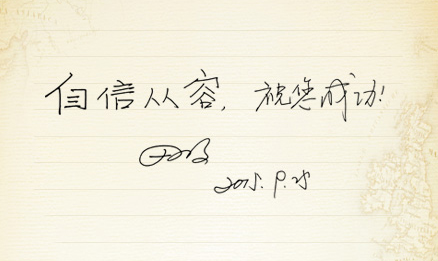 自信从容，祝您成功！
2015.9.25